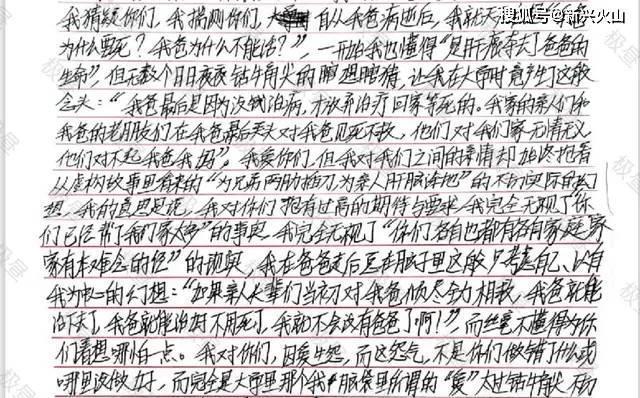 搜狐号@新兴火山
我猜疑你们，我揣测你们，自从我爸病逝后，我就天
为什么要死？我爸为什么不能活？”，一开始我也懂得“是肝癌夺去了爸爸的
生命”但无数个日日夜夜钻牛角尖的瞎想瞎猜，让我在大学时竟产生了这般
念头：“我爸最后是因为没钱治病，才放弃治疗回家等死的。我家的亲人们和
我爸的老朋友们在我爸最后关头对我爸见死不救，他们对我们家无情无义
他们对不起我爸我妈”。我爱你们，但我对我们之间的亲情却始终抱着
从虚构故事里看来的“为兄弟两肋插刀，为亲人肝脑涂地”的不切实际的幻
想，我的意思是说，我对你们抱有过高的期待与要求，我完全无视了“你
们已经帮了我们家太多”的事实，我完全无视了“你们各自也都有各自家庭，家
家有本难念的经”的现实，我在爸爸走后总在脑子里这般只考虑自己、以自
我为中心的幻想：“如果亲人长辈们当初对我爸倾尽全力相救，我爸就能
治下去，我爸就能治好不用死了，我就不会没有爸爸了啊！”，而丝毫不懂得为你
们着想哪怕一点。我对你们，因爱生怨，而这怨气，不是你们做错了什么或
哪里没做好，而完全是大学里那个我脑袋里所谓的“爱”太过钻牛角尖，
极昼